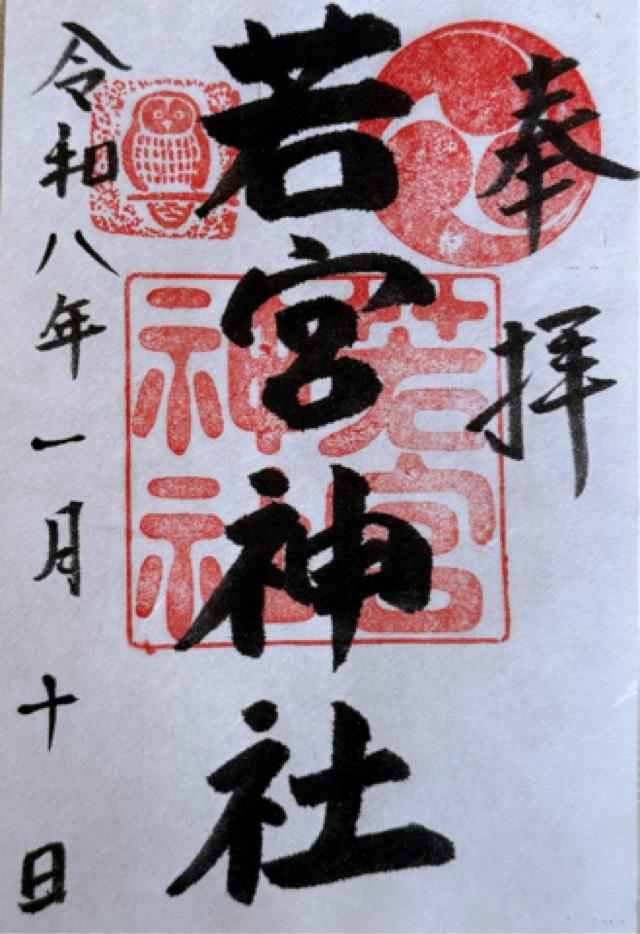 奉拝
若宮神社
若宮
神社
令和八年一月十日